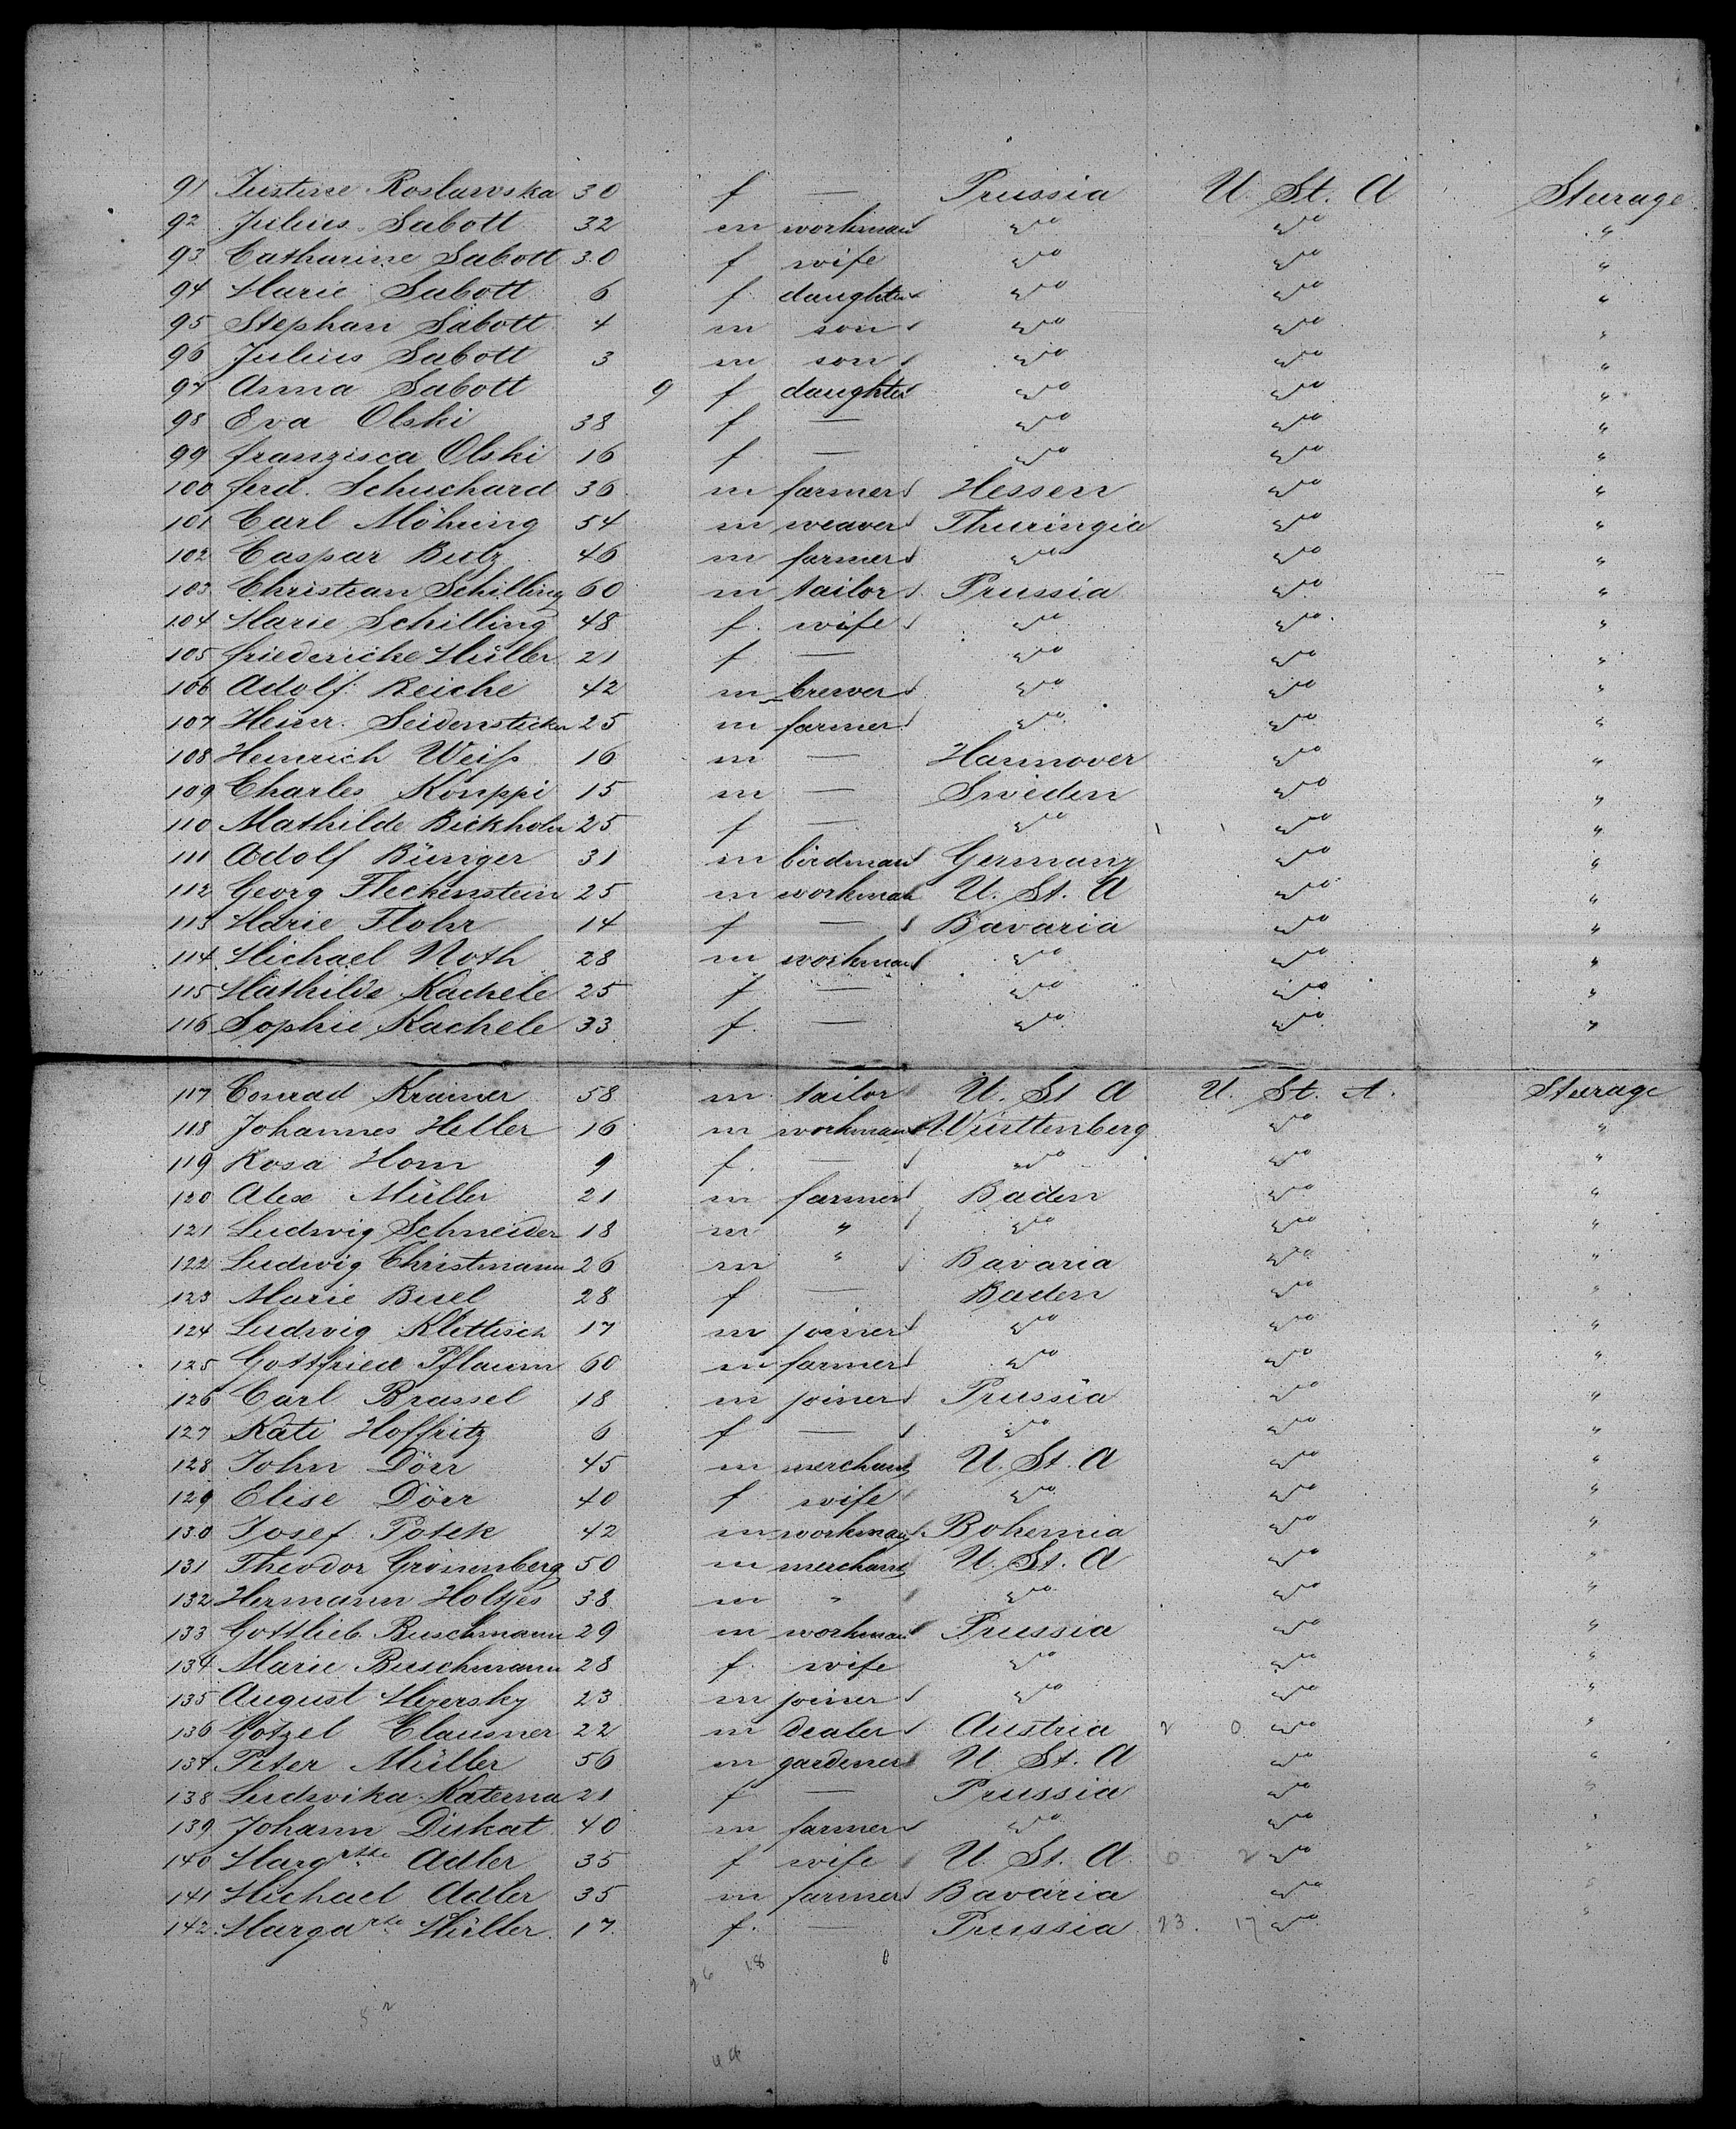 91 Justine Roslawska 30 f — Prussia U. St. A Steerage
92 Julius Sabott 32 m workman do do "
93 Catharine Sabott 30 f wife do do "
94 Marie Sabott 6 f daughter do do "
95 Stephan Sabott 4 m son do do "
96 Julius Sabott 3 m son do do "
97 Anna Sabott 9 f daughter do do "
98 Eva Olski 38 f — do do "
99 Franzisca Olski 16 f — do do "
100 Ferd. Schuchard 36 m farmer Hessen do "
101 Carl Möhring 54 m weaver Thuringia do "
102 Caspar Butz 46 m farmer do do "
103 Christian Schilling 60 m tailor Prussia do "
104 Marie Schilling 48 f. wife do do "
105 Friedericke Müller 21 f — do do "
106 Adolf Reiche 42 m brewer do do "
107 Heinr. Seidensticker 25 m farmer do do "
108 Heinrich Weiß 16 m — Hannover do "
109 Charles Konppi 15 m — Sweden do "
110 Mathilde Bickholm 25 f — do do "
111 Adolf Bünger 31 m birdman Germany do "
112 Georg Fleckenstein 25 m workman U. St. A do "
113 Marie Flohr 14 f — Bavaria do "
114 Michael Noth 28 m workman do do "
115 Mathilde Kachele 25 f — do do "
116 Sophie Kachele 33 f. — do do "
117 Conrad Kramer 58 m tailor U. St A U. St. A. Steerage
118 Johannes Heller 16 m workman Württenberg do "
119 Rosa Horn 9 f. — do do "
120 Alex Müller 21 m farmer Baden do "
121 Ludwig Schneider 18 m " do do "
122 Ludwig Christmann 26 m " Bavaria do "
123 Marie Buel 28 f — Baden do "
124 Ludwig Klettisch 17 m joiner do do "
125 Gottfried Pflaum 60 m farmer do do "
126 Carl Brassel 18 m joiner Prussia do "
127 Kati Hoffritz 6 f — do do "
128 John Dörr 45 m merchant U. St. A do "
129 Elise Dörr 40 f wife do do "
130 Josef Potek 42 m workman Bohemia do "
131 Theodor Grönenberg 50 m merchant U. St. A do "
132 Hermann Holtjes 38 m " do do "
133 Gottlieb Buschmann 29 m workman Prussia do "
134 Marie Buschmann 28 f. wife do do "
135 August Myersky 23 m joiner do do "
136 Götzel Clausner 22 m dealer Austria 2 0 do "
137 Peter Müller 56 m gardener U. St. A do "
138 Ludwika Katerna 21 f — Prussia do "
139 Johann Diskat 40 m farmer do do "
140 Margrthe Adler 35 f wife U. St. A 0 2 do "
141 Michael Adler 35 m farmer Bavaria do "
142 Margarthe Müller 17 f. — Prussia 23. 17 do "
26 18
52
44